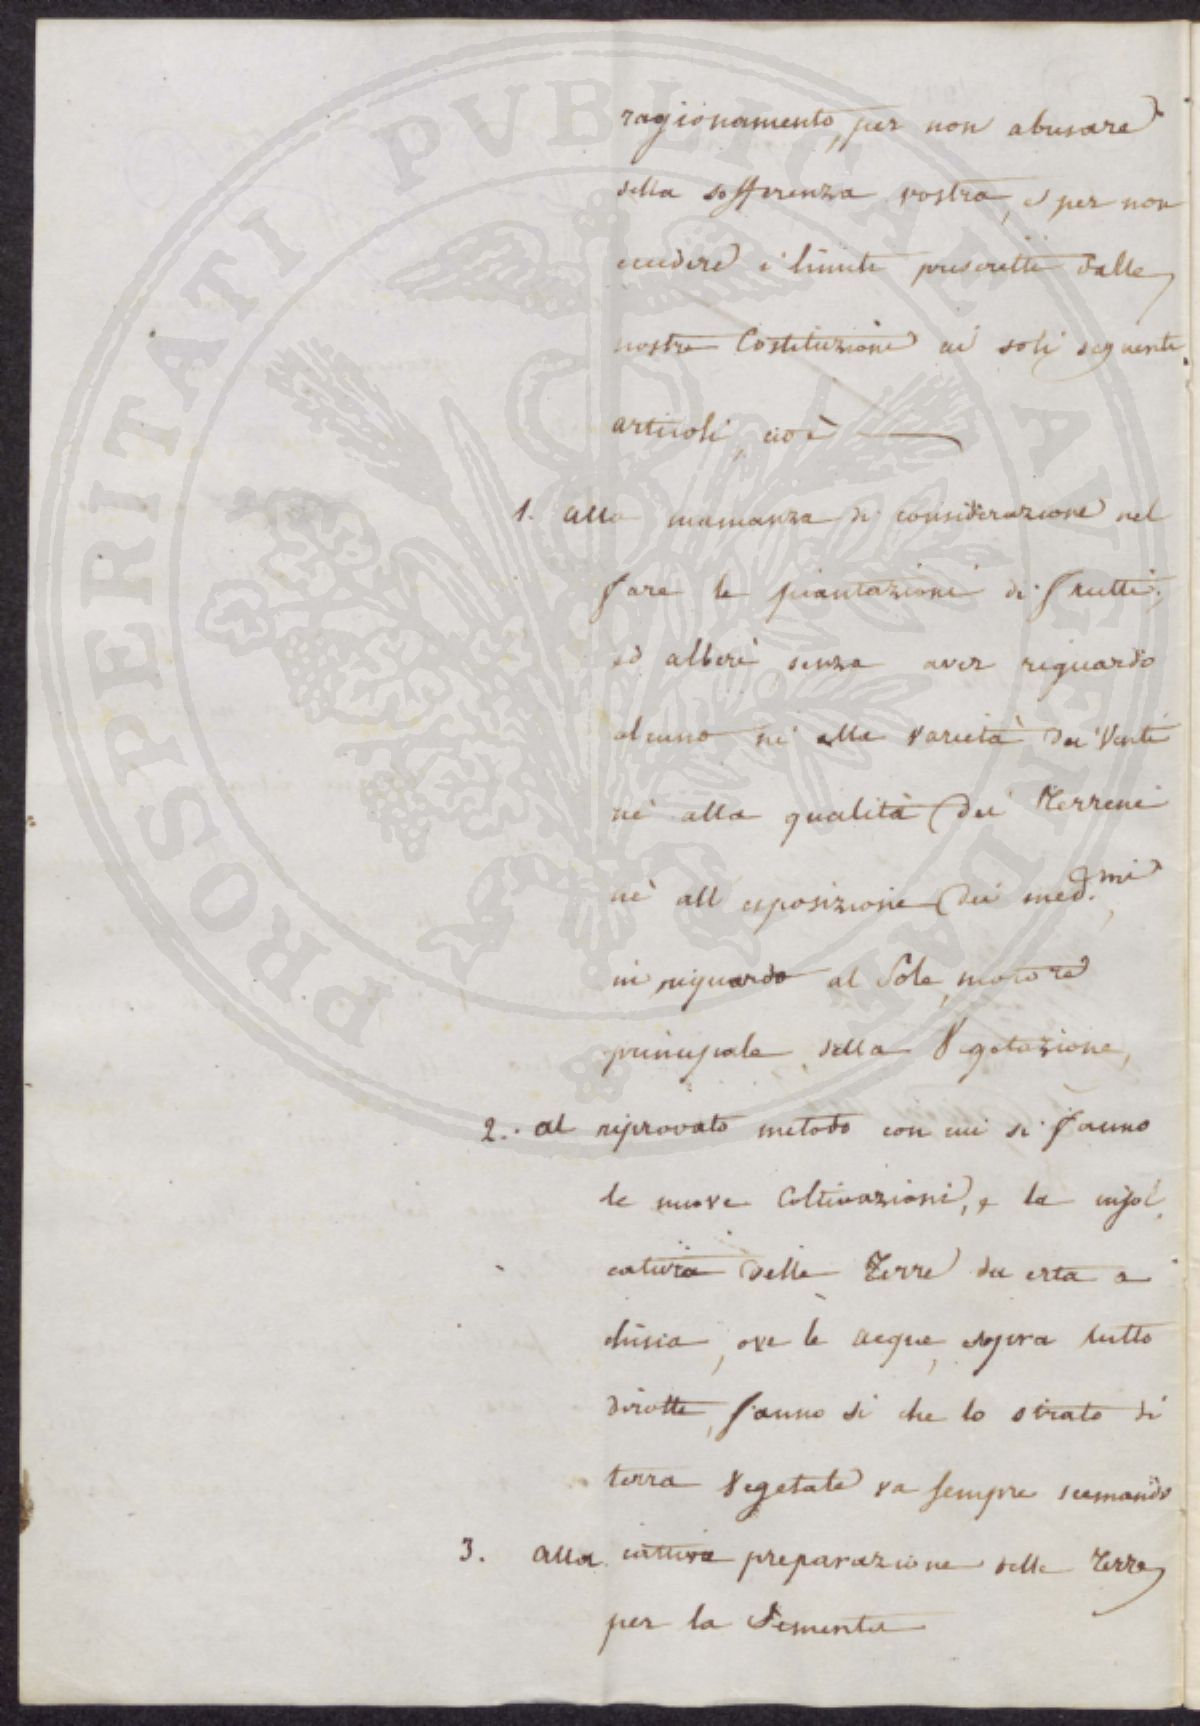 ragionamento, per non abusare
della sofferenza vostra, e per non
eccedere i limiti prescritti dalle
nostre Costituzioni ai soli seguenti
articoli, cioè
1. alla mancanza di considerazione nel
fare le piantazioni di frutti,
ed alberi senza aver riguardo
alcuno nè alla varietà dei Venti
nè alla qualità dei Terreni
nè all esposizione dei med.mi
in riguardo al Sole, motore
principale della Vegetazione,
2. al riprovato metodo con cui si fanno
le nuove Coltivazioni, e la insol
catura delle Terre da erta a
china, ove le acque, sopra tutto
dirotte, fanno si che lo strato di
terra Vegetale va sempre scemando
3. alla cattiva preparazione delle Terre
per la Sementa
PROSPERITATI PVBLICAE AVGENDAE